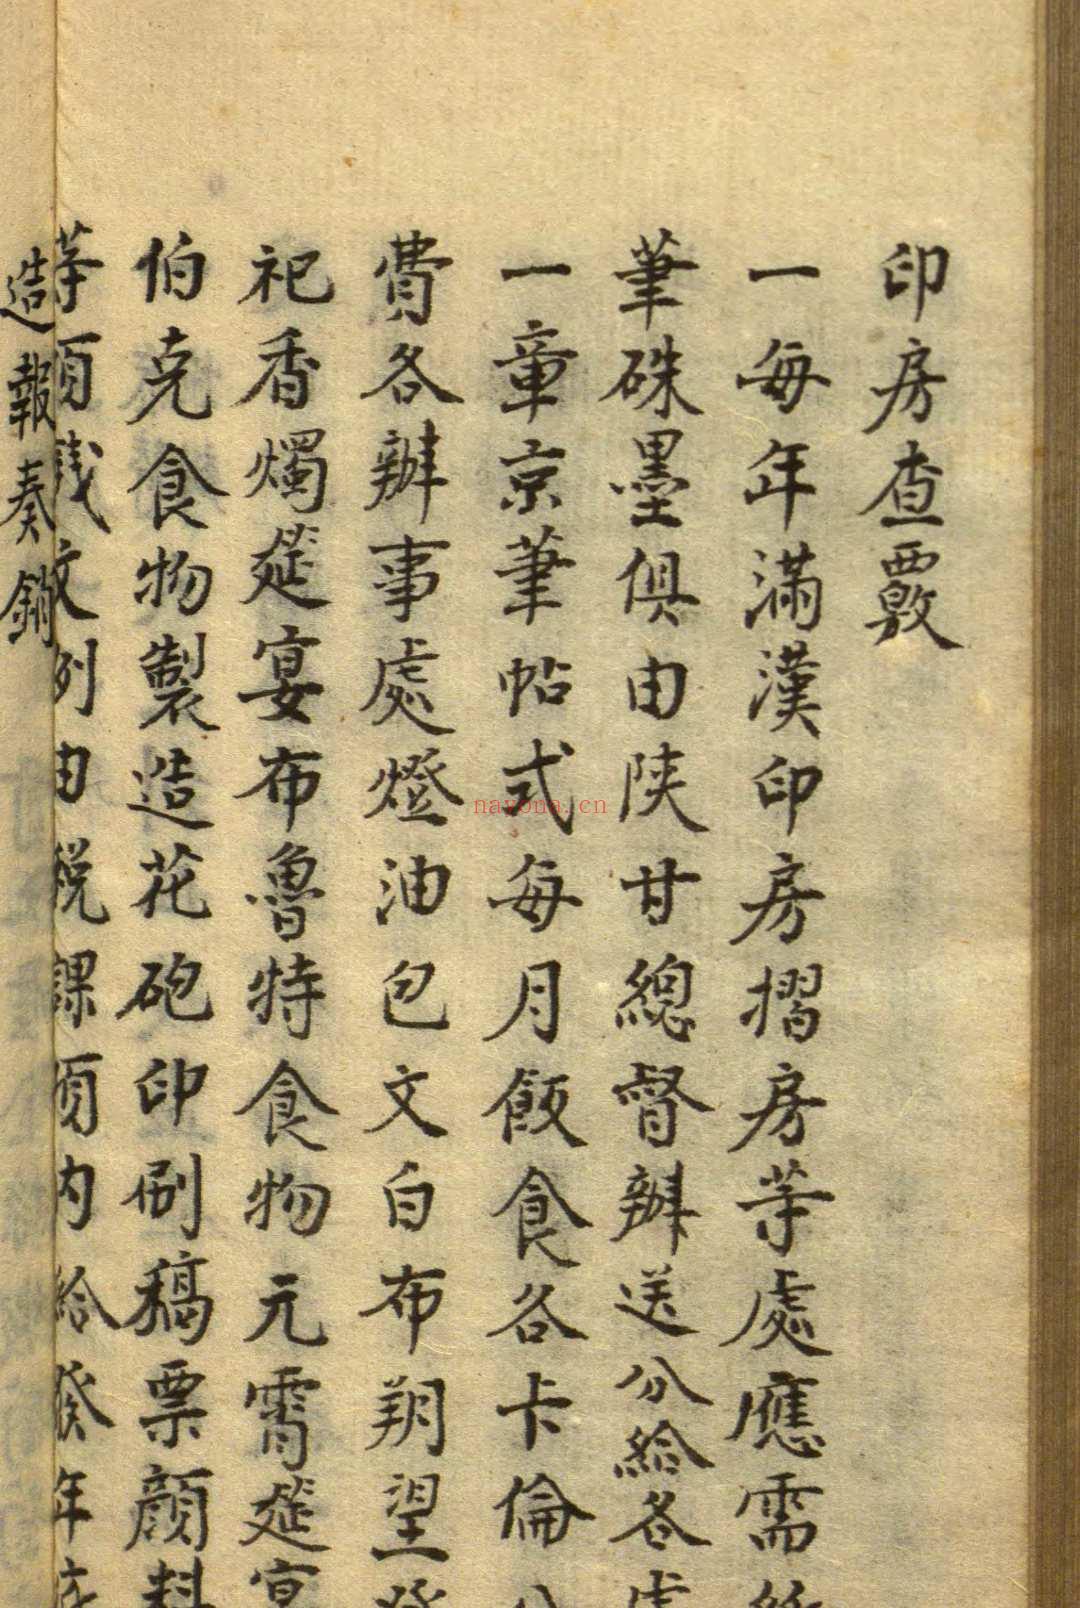 印房查覈
一每年滿漢印房摺房等處應需紙
筆硃墨俱由陝甘總督辦送分給各處
一章京筆帖式每月飯食各卡倫
費各辦事處燈油包文白布朔望
祀香燭筵宴布魯特食物元霄筵宴
伯克食物製造花砲印刷稿票顏料
等項錢文例由稅課項內給發年底
造報奏銷
nayona.cn